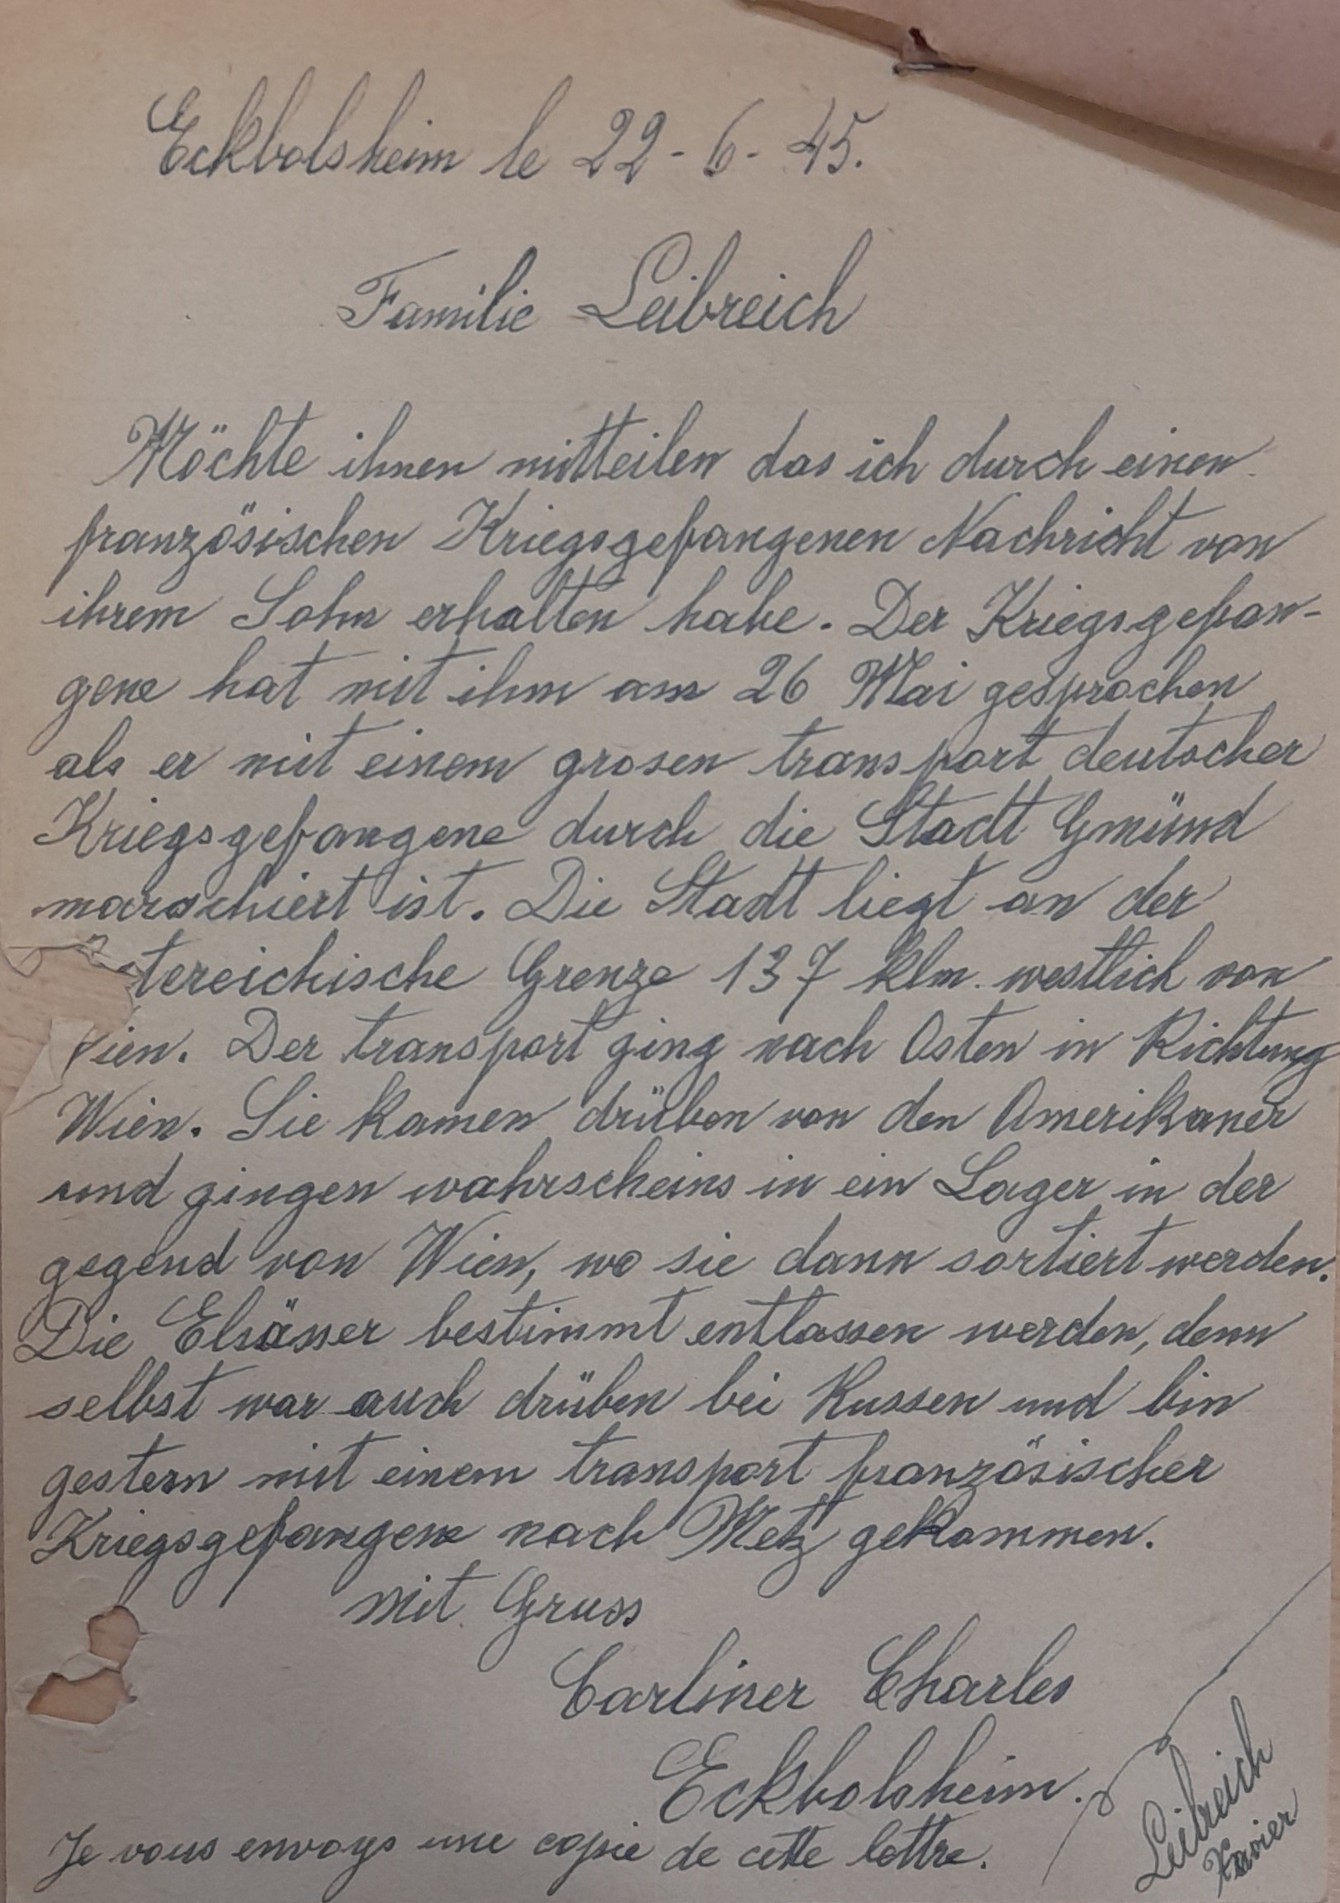 Eckbolsheim le 22-6-45.
Familie Leibreich
Möchte ihnen mitteilen das ich durch einen
französischen Kriegsgefangenen Nachricht von
ihrem Sohn erhalten habe. Der Kriegsgefan-
gene hat mit ihm am 26 Mai gesprochen
als er mit einem grosen transport deutscher
Kriegsgefangene durch die Stadt Gmünd
marschiert ist. Die Stadt liegt an der
tereichische Grenze 137 klm. westlich von
ien. Der transport ging nach Osten in Richtung
Wien. Sie kamen drüben von den Amerikaner
und gingen wahrscheins in ein Lager in der
gegend von Wien, wo sie dann sortiert werden.
Die Elsässer bestimmt entlassen werden, denn
selbst war auch drüben bei Russen und bin
gestern mit einem transport französischer
Kriegsgefangene nach Metz gekommen.
mit Gruss
Carliner Charles
Eckbolsheim.
Je vous envoys une copie de cette lettre.
Leibreich
Xavier